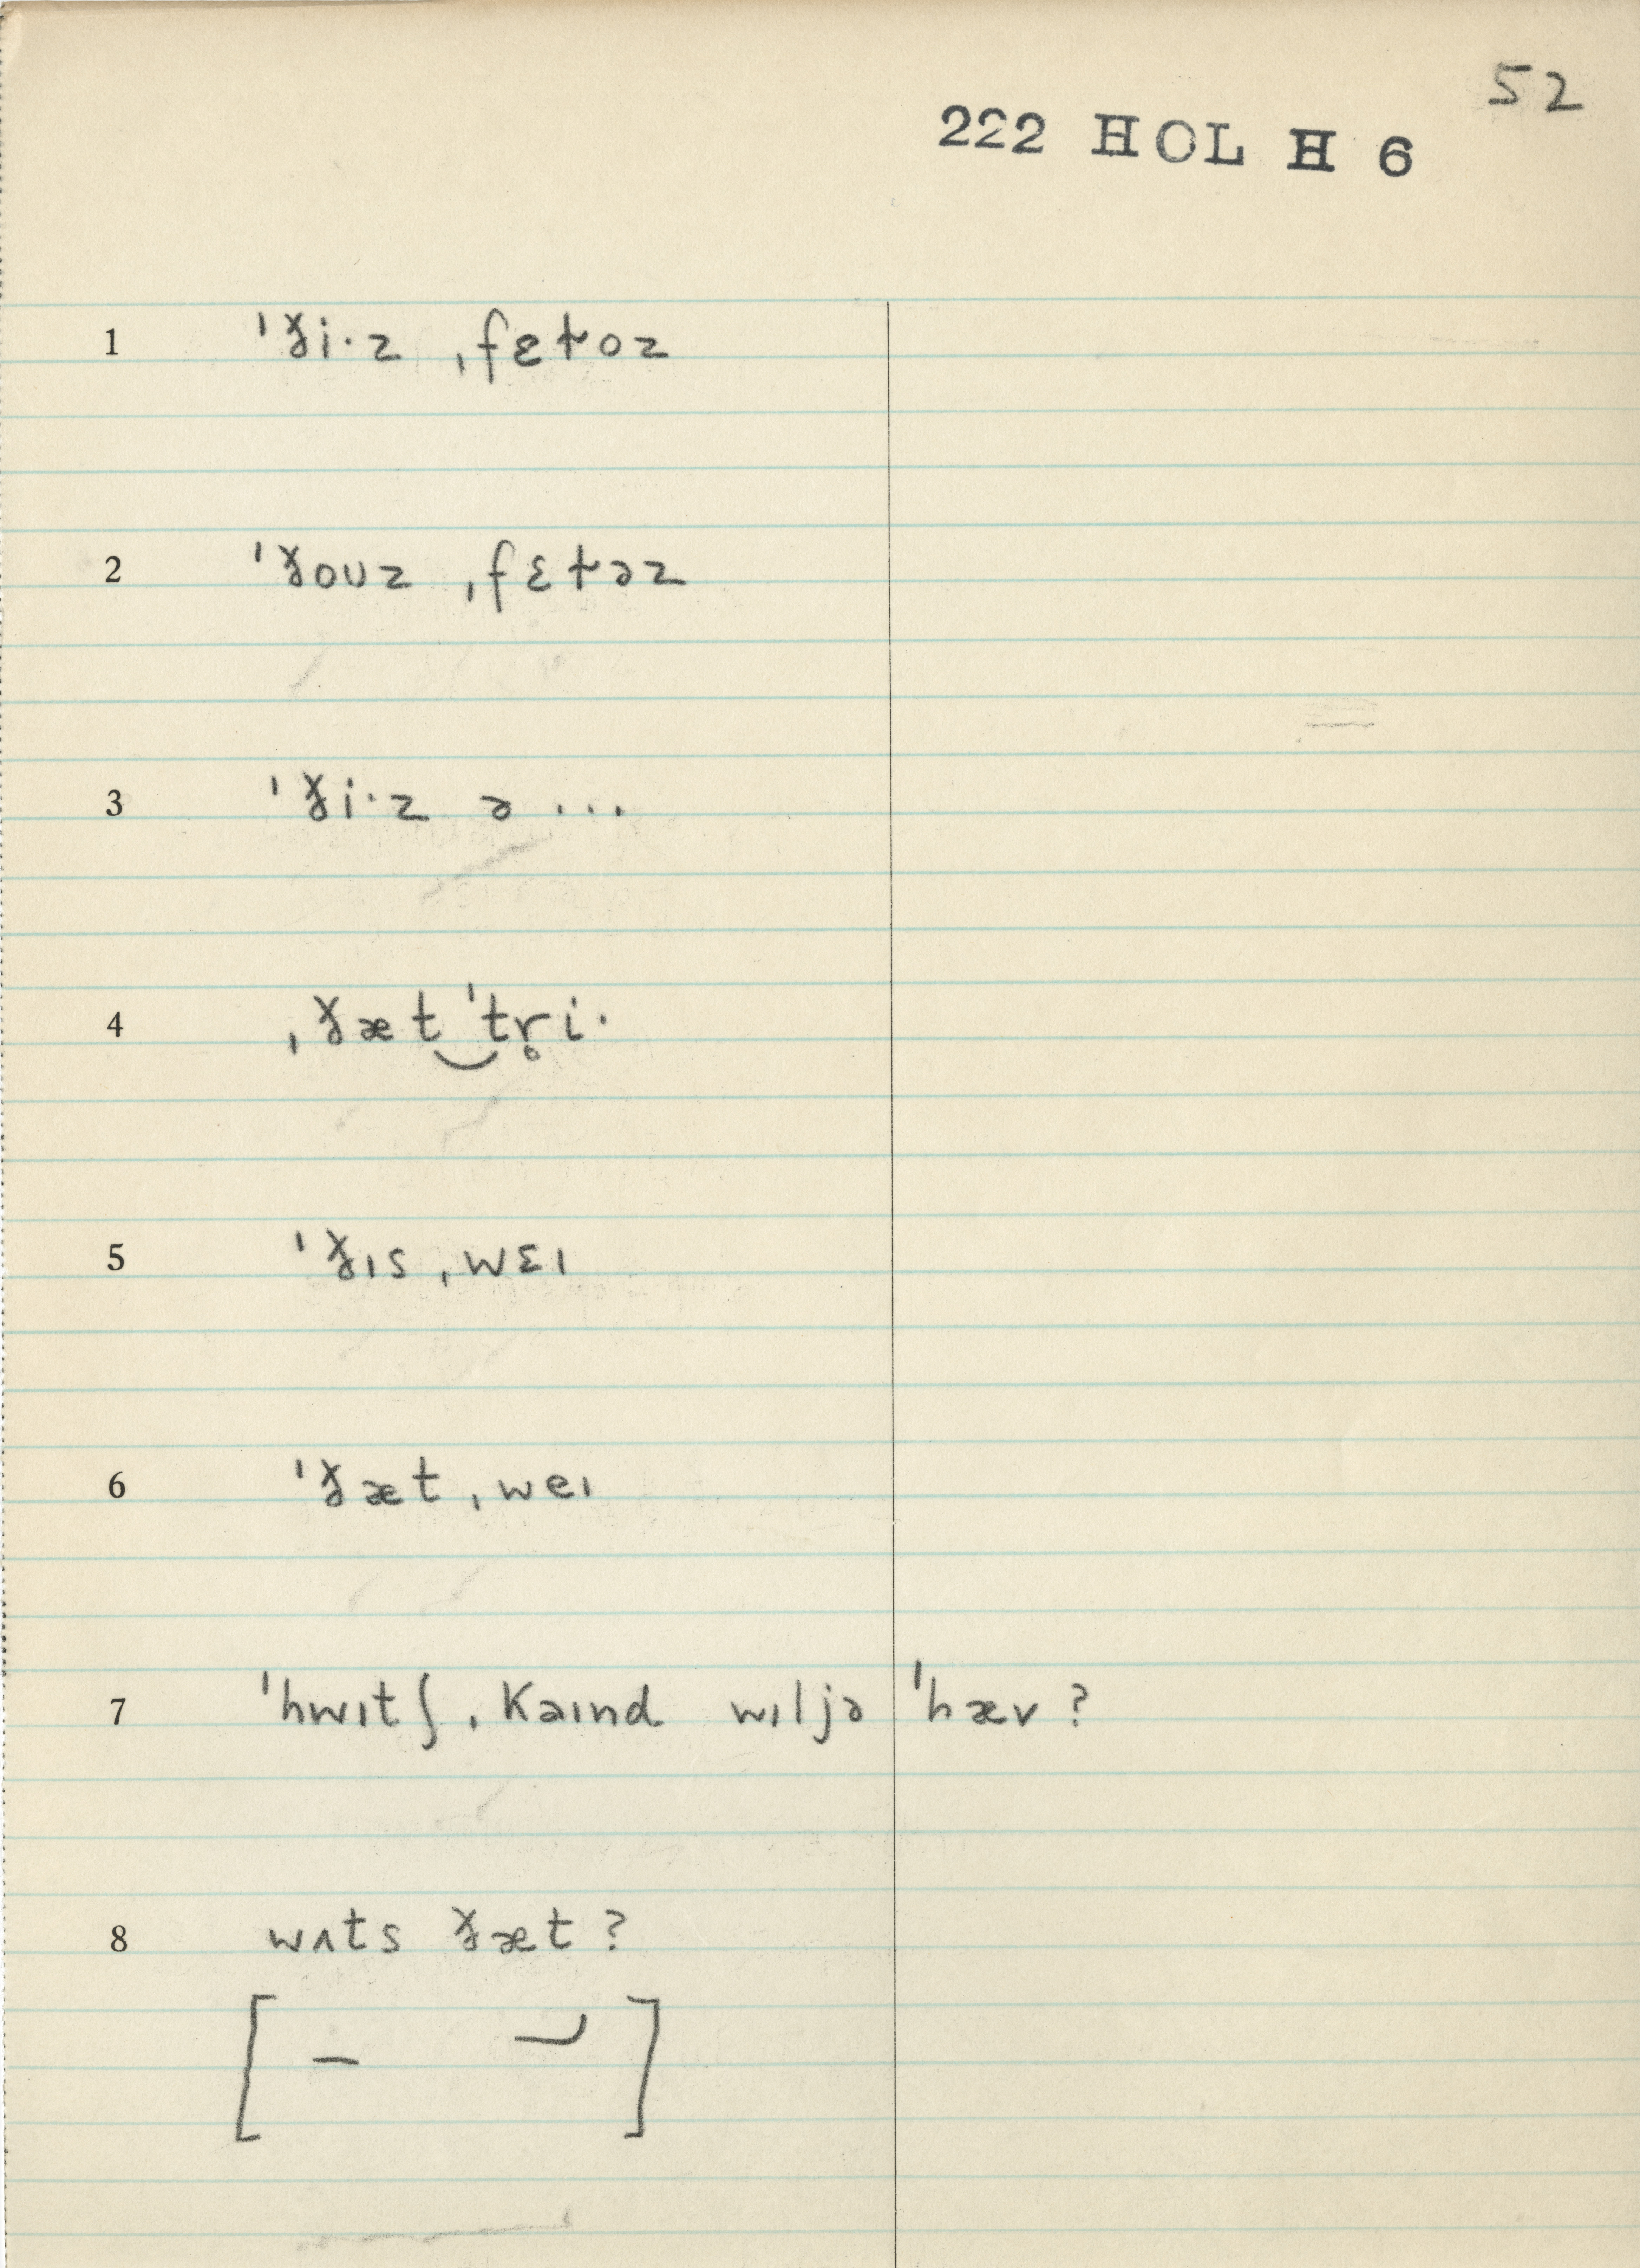 52
222 HOL H 6
1 ˈð̵i·z ˌfɛt̬oz
2 ˈð̵oᴜz ˌfɛt̬əz
3 ˈð̵i·z ə ...
4 ˌð̵æt‿ˈtr̥i·
5 ˈð̵ɪs ˌwɛɪ
6 ˈð̵æt ˌweɪ
7 ˈhwɪtʃ ˌkaɪnd wɪljə ˈhæv ?
8 wʌts ð̵æt ?